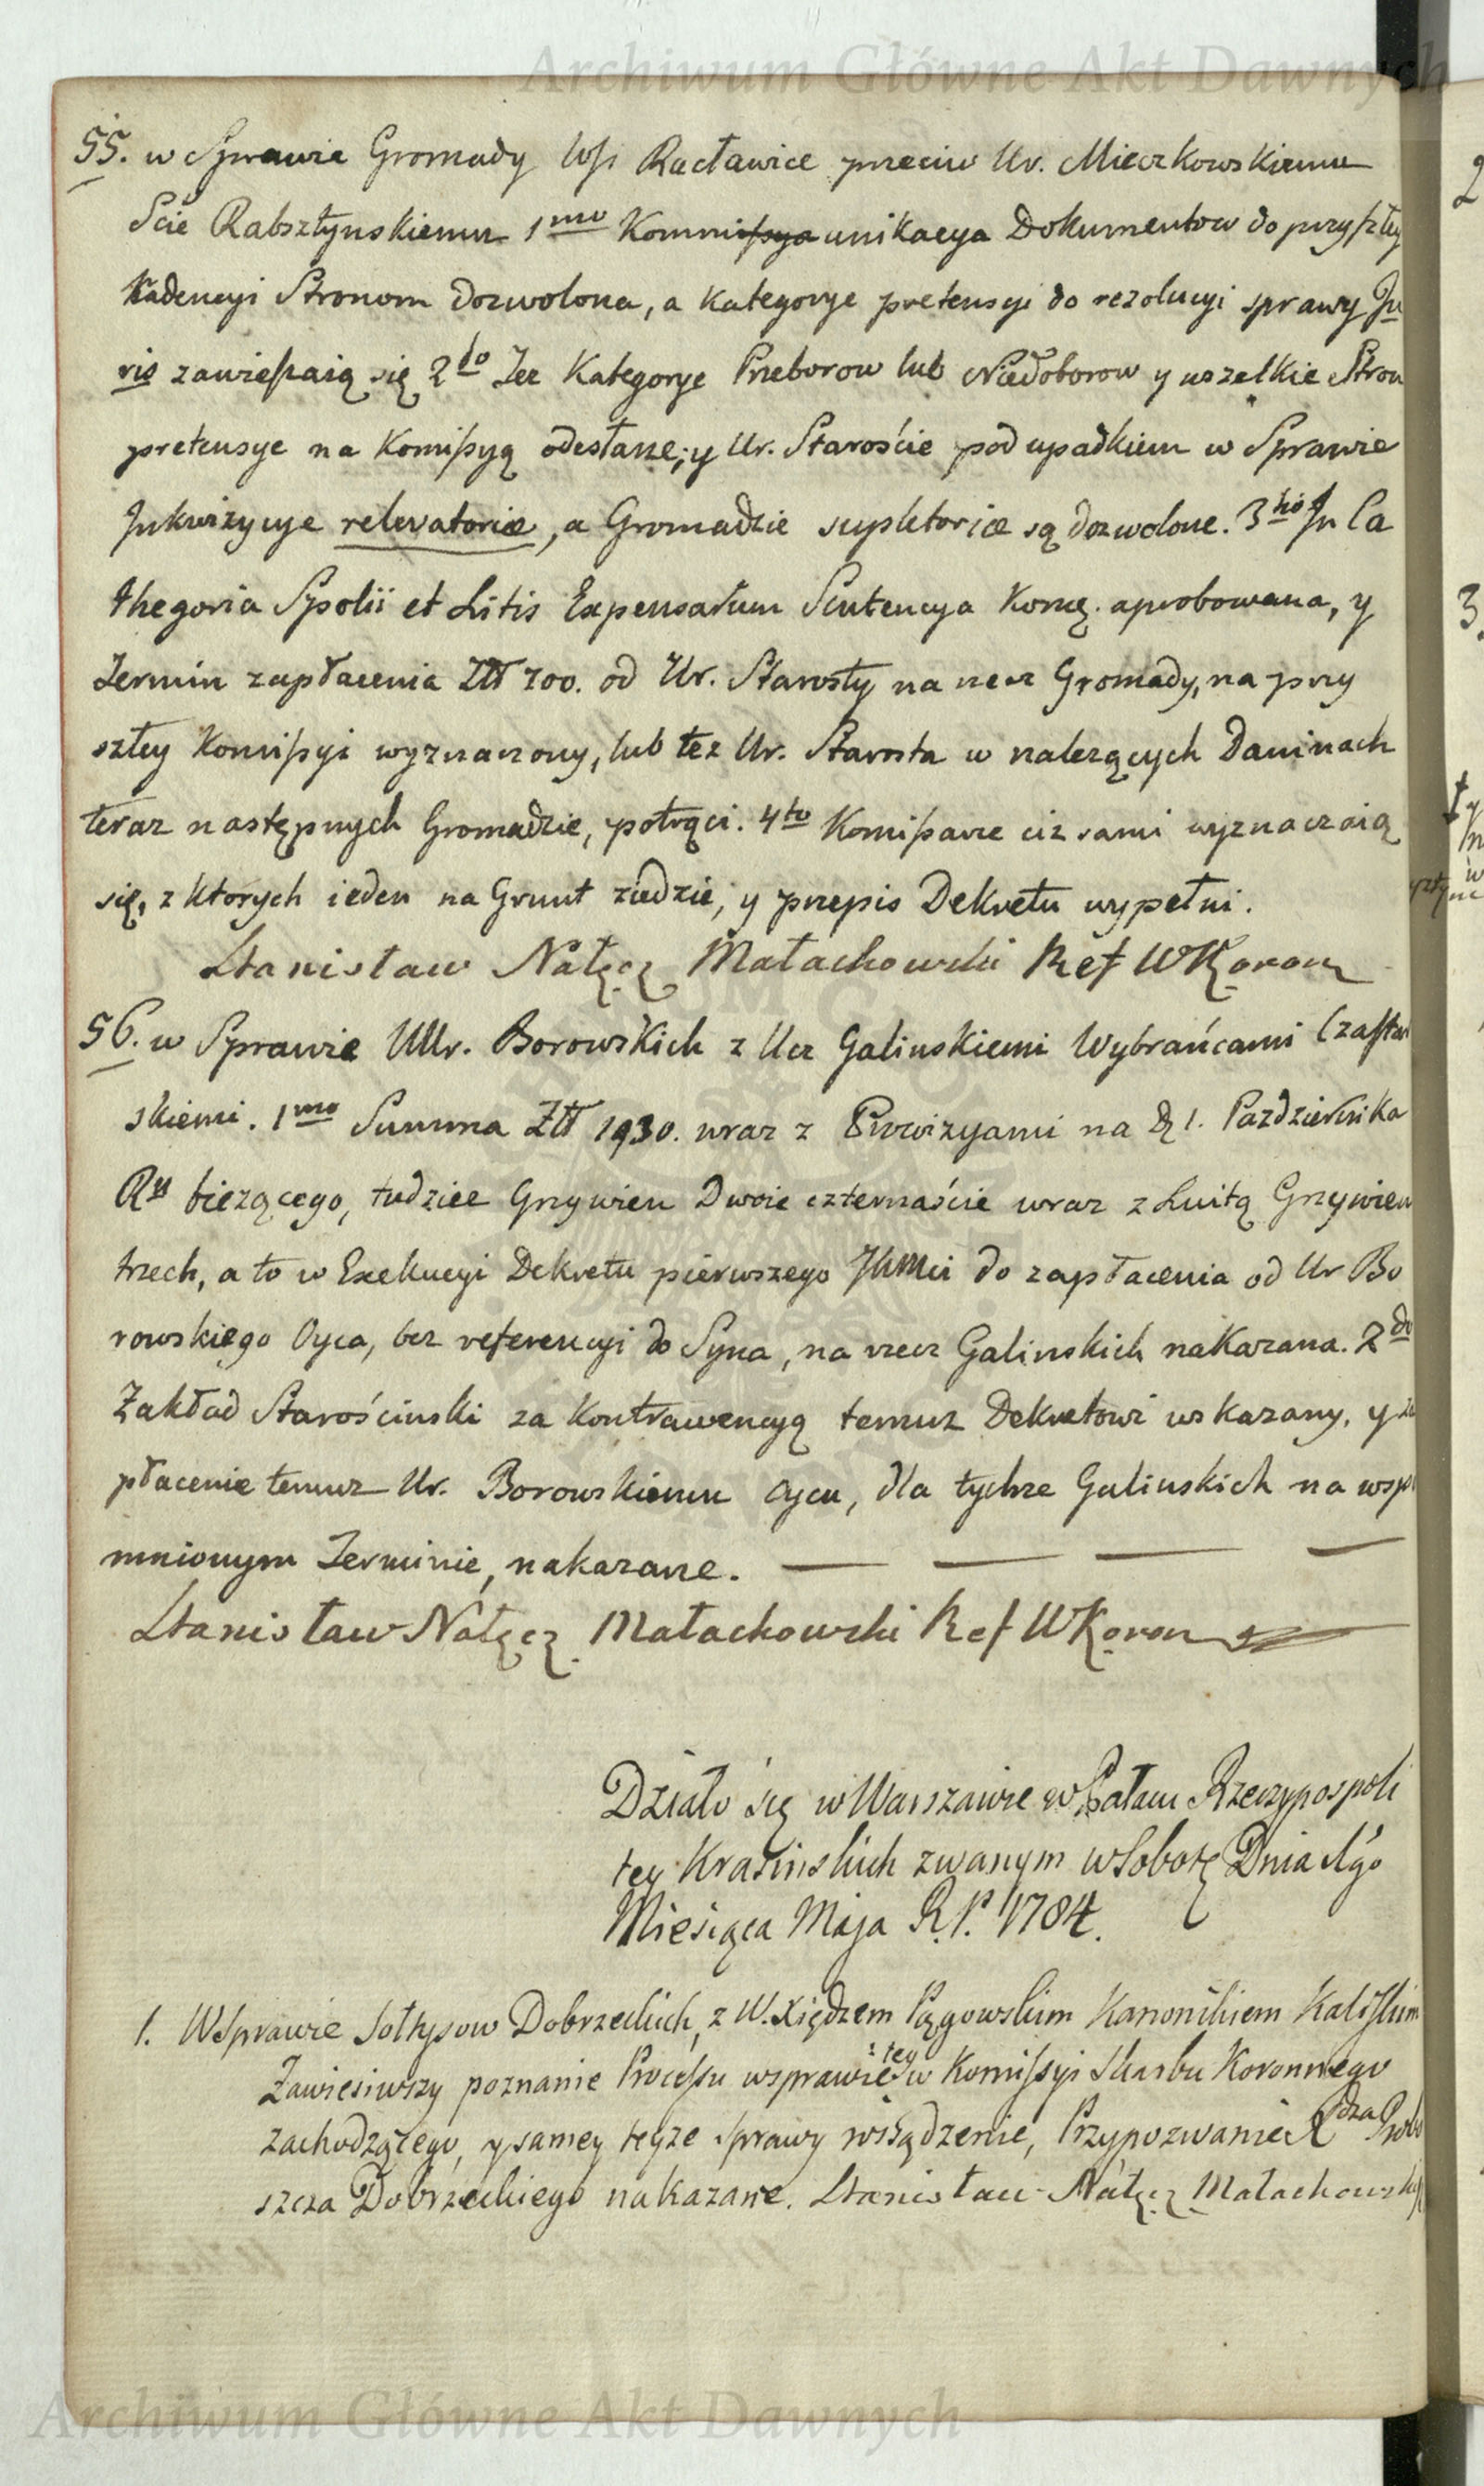 Archiwum Główne Akt Dawnych
55. w Sprawie Gromady Wsi Racławice przeciw Ur. Mieczkowskiemu
Ście Rabsztynskiemu 1mo Kommissya unikacya Dokumentow do przyszłey
Kadencyi Stronom dozwolona, a Kategorye pretensyi do rezolucyi sprawy Ju
ris zawieszaią się 2do Też Kategorye Przeborow lub Niedoborow y wszelkie Stron
pretensye na Komissyą odesłane; y Ur. Staroście pod upadkiem w Sprawie
Jnkwizycye relevatoriæ, a Gromadzie supletoriæ są dozwolone. 3tio Jn Ca
thegoria Spolii et Litis Expensarum Sentencya Komis. aprobowana, y
Termin zapłacenia Złł 700. od Ur. Starosty na rzecz Gromady, na przy
szłey Komissyi wyznaczony, lub też Ur. Starosta w należących Daninach
teraz następnych Gromadzie, potrąci. 4to Komissarze ciż sami wyznaczaią
się, z ktorych ieden na Grunt ziedzie, y przepis Dekretu wypełni.
Stanisław Nałęcz Małachowski Ref WKoron
56. w Sprawie UUr. Borowskich z Ucz Galinskiemi Wybrańcami
skiemi. 1mo Summa Złł 1930. wraz z Prowizyami na D. 1. Pazdziernika
Ru bieżącego, tudzież Grzywien Dwoie czternaście wraz z Luitą Grzywien
trzech, a to w Exekucyi Dekretu pierwszego do zapłacenia od Ur Bo
rowskiego Oyca, bez referencyi do Syna, na rzecz Galinskich nakazana. 2do
Zakład Starościnski za kontrawencyą temuż Dekretowi wskazany, y za
płacenie temuż Ur. Borowskiemu Oycu, dla tychże Galinskich na wspo
mnionym Terminie, nakazane.
Stanisław Nałęcz Małachowski Ref WKoron
Działo się w Warszawie w Pałacu Rzeczypospoli
tey Krasinskich zwanym w Sobotę Dnia 1go
Miesiąca Maja R.P. 1784.
1. W Sprawie Sołtysow Dobrzeckich, z W. Xiędzem Pągowskim Kanonikiem Kaliskim
Zawiesiwszy poznanie Processu w sprawie tey w Komissyi Skarbu Koronnego
zachodzącego, y samey teyże sprawy rozsądzenie, Przypozwanie Xdza Probo
szcza Dobrzeckiego nakazane. Stanisław Nałęcz Małachowski
Archiwum Główne Akt Dawnych